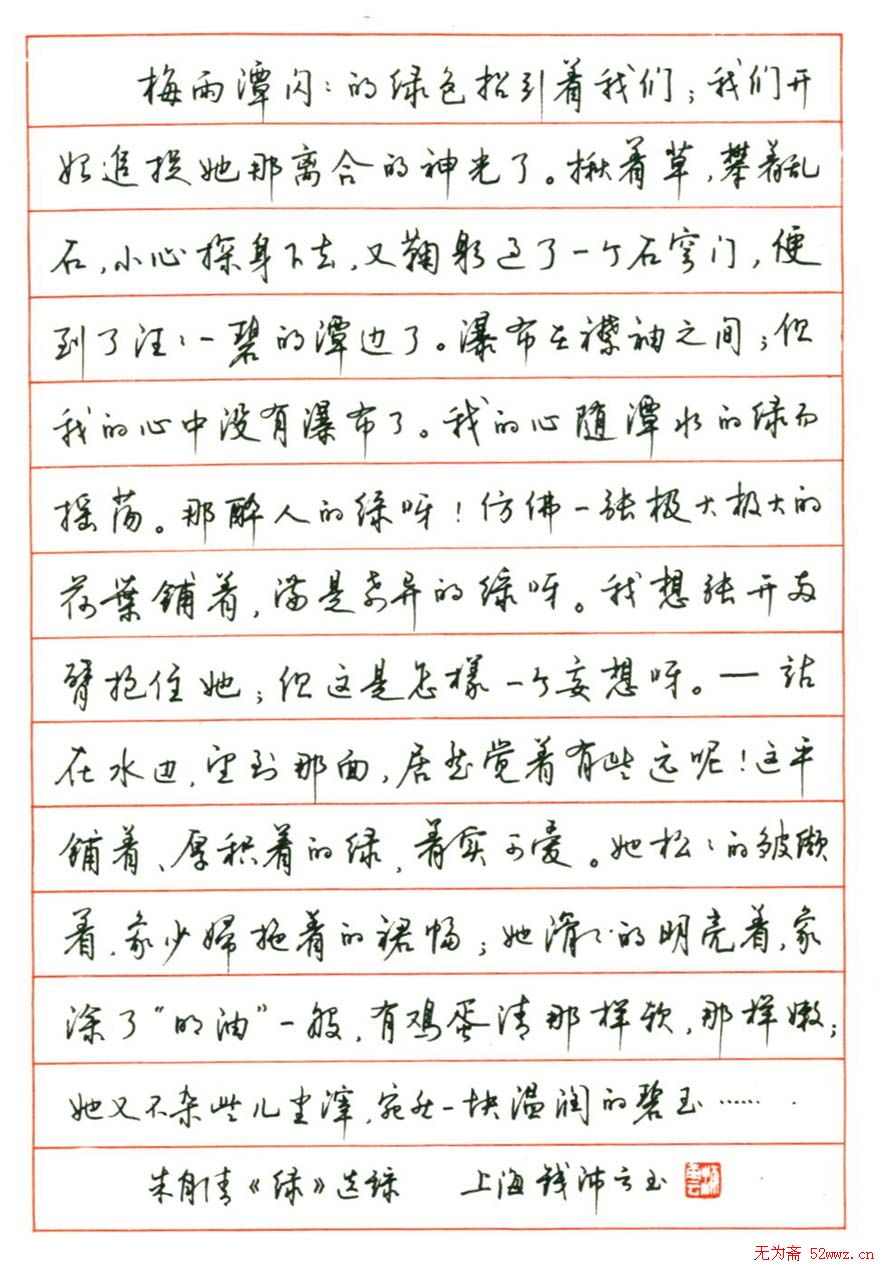 梅雨潭闪：的绿色招引着我们；我们开
始追捉她那离合的神光了。揪着草，攀着乱
石，小心探身下去，又鞠躬过了一个石穹门，便
到了汪：一碧的潭边了。瀑布在襟袖之间；但
我的心中没有瀑布了。我的心随潭水的绿而
摇荡。那醉人的绿呀！仿佛一张极大极大的
荷葉铺着，满是奇异的绿呀。我想张开两
臂抱住她；但这是怎樣一个妄想呀。—站
在水边，望到那面，居然觉着有些远呢！这平
铺着、厚积着的绿，着实可爱。她松：的皱缬
着，象少婦拖着的裙幅；她滑：的明亮着，象
涂了“明油”一般，有鸡蛋清那样软，那样嫩；
她又不杂些儿尘滓，宛然一块温润的碧玉……
朱自清《绿》选录 上海钱沛云书
无为斋 52wwz.cn